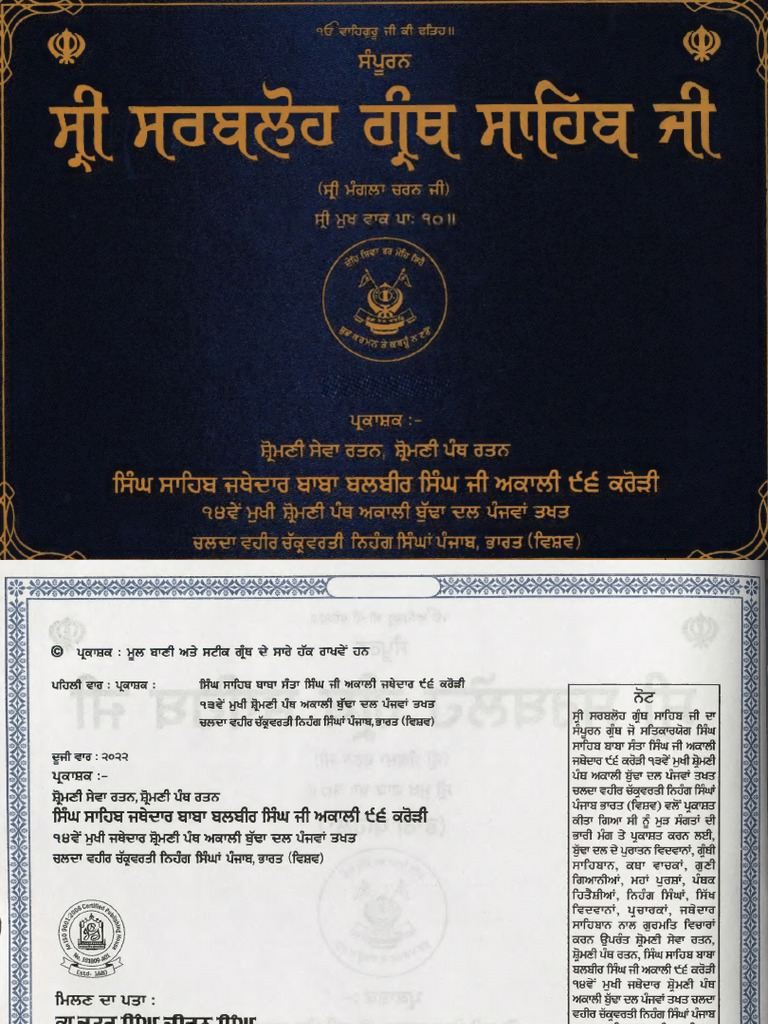 ੴ ਵਾਹਿਗੁਰੂ ਜੀ ਕੀ ਫਤਿਹ॥
ਸੰਪੂਰਨ
ਸ੍ਰੀ ਸਰਬਲੋਹ ਗ੍ਰੰਥ ਸਾਹਿਬ ਜੀ
(ਸ੍ਰੀ ਮੰਗਲਾ ਚਰਨ ਜੀ)
ਸ੍ਰੀ ਮੁਖ ਵਾਕ ਪਾ: ੧੦॥
ਦੇਹਿ ਸਿਵਾ ਬਰ ਮੋਹਿ ਇਹੈ
ਸੁਭ ਕਰਮਨ ਤੇ ਕਬਹੂੰ ਨ ਟਰੋਂ
ਪ੍ਰਕਾਸ਼ਕ :-
ਸ਼੍ਰੋਮਣੀ ਸੇਵਾ ਰਤਨ, ਸ਼੍ਰੋਮਣੀ ਪੰਥ ਰਤਨ
ਸਿੰਘ ਸਾਹਿਬ ਜਥੇਦਾਰ ਬਾਬਾ ਬਲਬੀਰ ਸਿੰਘ ਜੀ ਅਕਾਲੀ ੯੬ ਕਰੋੜੀ
੧੪ਵੇਂ ਮੁਖੀ ਸ਼੍ਰੋਮਣੀ ਪੰਥ ਅਕਾਲੀ ਬੁੱਢਾ ਦਲ ਪੰਜਵਾਂ ਤਖਤ
ਚਲਦਾ ਵਹੀਰ ਚੱਕ੍ਰਵਰਤੀ ਨਿਹੰਗ ਸਿੰਘਾਂ ਪੰਜਾਬ, ਭਾਰਤ (ਵਿਸ਼ਵ)
© ਪ੍ਰਕਾਸ਼ਕ : ਮੂਲ ਬਾਣੀ ਅਤੇ ਸਟੀਕ ਗ੍ਰੰਥ ਦੇ ਸਾਰੇ ਹੱਕ ਰਾਖਵੇਂ ਹਨ
ਪਹਿਲੀ ਵਾਰ : ਪ੍ਰਕਾਸ਼ਕ : ਸਿੰਘ ਸਾਹਿਬ ਬਾਬਾ ਸੰਤਾ ਸਿੰਘ ਜੀ ਅਕਾਲੀ ਜਥੇਦਾਰ ੯੬ ਕਰੋੜੀ
੧੩ਵੇਂ ਮੁਖੀ ਸ਼੍ਰੋਮਣੀ ਪੰਥ ਅਕਾਲੀ ਬੁੱਢਾ ਦਲ ਪੰਜਵਾਂ ਤਖਤ
ਚਲਦਾ ਵਹੀਰ ਚੱਕ੍ਰਵਰਤੀ ਨਿਹੰਗ ਸਿੰਘਾਂ ਪੰਜਾਬ, ਭਾਰਤ (ਵਿਸ਼ਵ)
ਦੂਜੀ ਵਾਰ : ੨੦੨੨
ਪ੍ਰਕਾਸ਼ਕ :-
ਸ਼੍ਰੋਮਣੀ ਸੇਵਾ ਰਤਨ, ਸ਼੍ਰੋਮਣੀ ਪੰਥ ਰਤਨ
ਸਿੰਘ ਸਾਹਿਬ ਜਥੇਦਾਰ ਬਾਬਾ ਬਲਬੀਰ ਸਿੰਘ ਜੀ ਅਕਾਲੀ ੯੬ ਕਰੋੜੀ
੧੪ਵੇਂ ਮੁਖੀ ਜਥੇਦਾਰ ਸ਼੍ਰੋਮਣੀ ਪੰਥ ਅਕਾਲੀ ਬੁੱਢਾ ਦਲ ਪੰਜਵਾਂ ਤਖਤ
ਚਲਦਾ ਵਹੀਰ ਚੱਕ੍ਰਵਰਤੀ ਨਿਹੰਗ ਸਿੰਘਾਂ ਪੰਜਾਬ, ਭਾਰਤ (ਵਿਸ਼ਵ)
An ISO 9001:2008 Certified Publishing House
Estd- 1880
ਮਿਲਣ ਦਾ ਪਤਾ :
ਨੋਟ
ਸ੍ਰੀ ਸਰਬਲੋਹ ਗ੍ਰੰਥ ਸਾਹਿਬ ਜੀ ਦਾ
ਸੰਪੂਰਨ ਗ੍ਰੰਥ ਜੋ ਸਤਿਕਾਰਯੋਗ ਸਿੰਘ
ਸਾਹਿਬ ਬਾਬਾ ਸੰਤਾ ਸਿੰਘ ਜੀ ਅਕਾਲੀ
ਜਥੇਦਾਰ ੯੬ ਕਰੋੜੀ ੧੩ਵੇਂ ਮੁਖੀ ਸ਼੍ਰੋਮਣੀ
ਪੰਥ ਅਕਾਲੀ ਬੁੱਢਾ ਦਲ ਪੰਜਵਾਂ ਤਖਤ
ਚਲਦਾ ਵਹੀਰ ਚੱਕ੍ਰਵਰਤੀ ਨਿਹੰਗ ਸਿੰਘਾਂ
ਪੰਜਾਬ ਭਾਰਤ (ਵਿਸ਼ਵ) ਵਲੋਂ ਪ੍ਰਕਾਸ਼ਤ
ਕੀਤਾ ਗਿਆ ਸੀ ਨੂੰ ਮੁੜ ਸੰਗਤਾਂ ਦੀ
ਭਾਰੀ ਮੰਗ ਤੇ ਪ੍ਰਕਾਸ਼ਤ ਕਰਨ ਲਈ,
ਬੁੱਢਾ ਦਲ ਦੇ ਪੁਰਾਤਨ ਵਿਦਵਾਨਾਂ, ਗ੍ਰੰਥੀ
ਸਾਹਿਬਾਨ, ਕਥਾ ਵਾਚਕਾਂ, ਗੁਣੀ
ਗਿਆਨੀਆਂ, ਮਹਾਂ ਪੁਰਸ਼ਾਂ, ਪੰਥਕ
ਹਿਤੈਸ਼ੀਆਂ, ਨਿਹੰਗ ਸਿੰਘਾਂ, ਸਿੱਖ
ਵਿਦਵਾਨਾਂ, ਪ੍ਰਚਾਰਕਾਂ, ਜਥੇਦਾਰ
ਸਾਹਿਬਾਨ ਨਾਲ ਗੁਰਮਤਿ ਵਿਚਾਰਾਂ
ਕਰਨ ਉਪਰੰਤ ਸ਼੍ਰੋਮਣੀ ਸੇਵਾ ਰਤਨ,
ਸ਼੍ਰੋਮਣੀ ਪੰਥ ਰਤਨ, ਸਿੰਘ ਸਾਹਿਬ ਬਾਬਾ
ਬਲਬੀਰ ਸਿੰਘ ਜੀ ਅਕਾਲੀ ੯੬ ਕਰੋੜੀ
੧੪ਵੇਂ ਮੁਖੀ ਜਥੇਦਾਰ ਸ਼੍ਰੋਮਣੀ ਪੰਥ
ਅਕਾਲੀ ਬੁੱਢਾ ਦਲ ਪੰਜਵਾਂ ਤਖਤ ਚਲਦਾ
ਵਹੀਰ ਚੱਕ੍ਰਵਰਤੀ ਨਿਹੰਗ ਸਿੰਘਾਂ ਪੰਜਾਬ